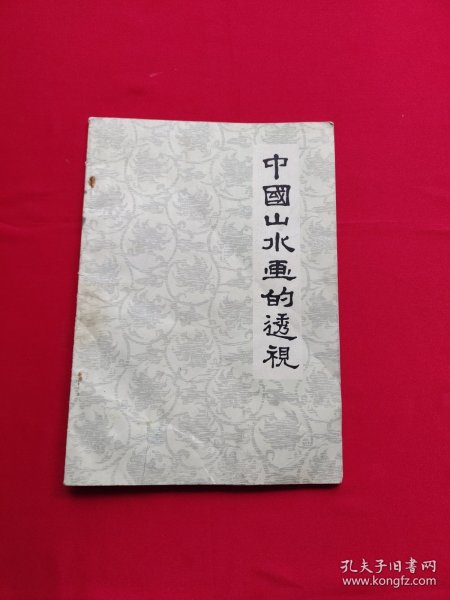 中國山水画的透視
孔夫子旧书网
www.kongfz.com